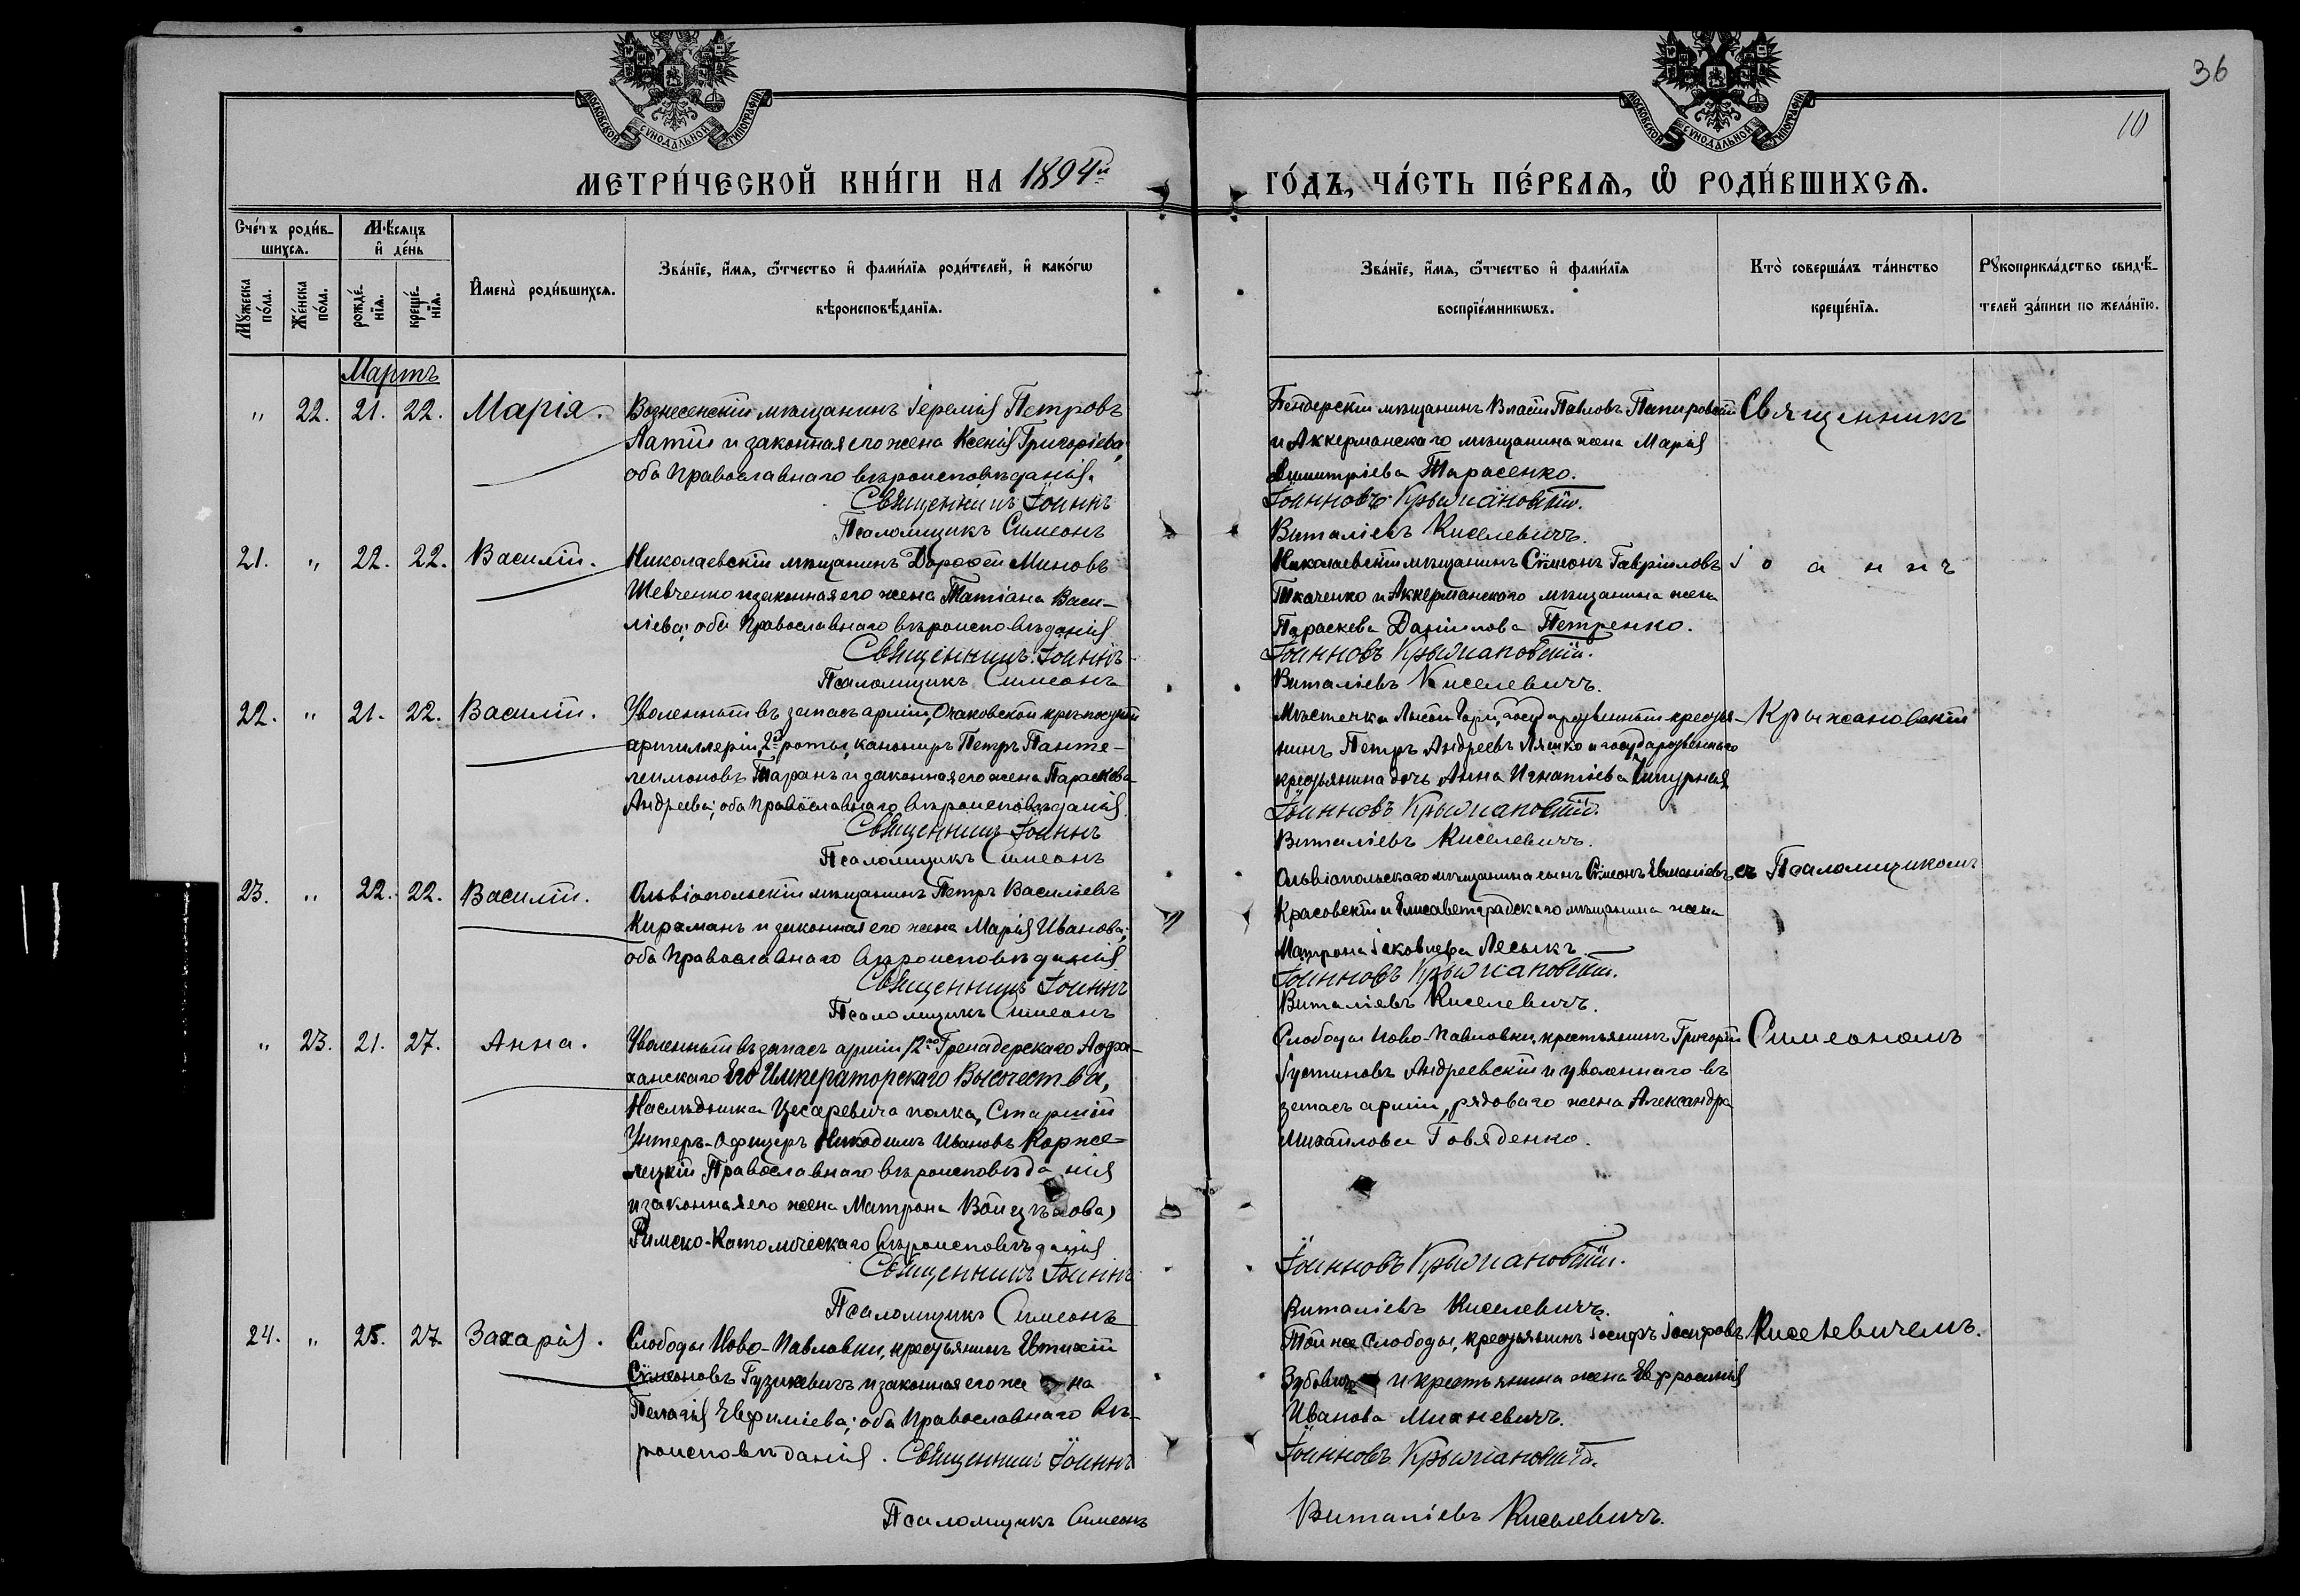 36
10
МОСКОВСКОЙ СѴНОДАЛЬНОЙ ТИПОГРАФІИ
МОСКОВСКОЙ СѴНОДАЛЬНОЙ ТИПОГРАФІИ
МЕТРИ́ЧЕСКОЙ КНИ́ГИ НА 1894й
ГО́ДЪ, ЧА́СТЬ ПЕ́РВАѦ, Ѡ҆ РОДИ́ВШИХСѦ.
Сче́тъ роди́в-
шихсѧ.
Мѣ́сѧцъ
и҆ де́нь
Мꙋ́жеска по́ла.
Же́нска по́ла.
рожде́-
нїѧ.
креще́-
нїѧ.
И҆мена̀ роди́вшихсѧ.
Зва́нїе, и҆́мѧ, ѻ҆́тчество и҆ фами́лїѧ роди́телей, и҆ како́гѡ
вѣроисповѣ́данїѧ.
Зва́нїе, и҆́мѧ, ѻ҆́тчество и҆ фами́лїѧ
воспрїе́мникѡвъ.
Кто̀ соверша́лъ та́инство
креще́нїѧ.
Рꙋкоприкла́дство свидѣ́-
телей за́писи по жела́нїю.
Мартъ
" 22. 21. 22. Марія.
Вознесенскій мѣщанинъ Іеремія Петровъ
Латій и законная его жена Ксенія Григоріева,
оба Православнаго вѣроисповѣданія.
Священникъ Іоаннъ
Псаломщикъ Симеонъ
Бендерскій мѣщанинъ Власій Павловъ Папировскій
и Аккерманскаго мѣщанина жена Марія
Димитріева Тарасенко.
Іоанновъ Крыжановскій.
Виталіевъ Киселевичъ.
Священникъ
21. " 22. 22. Василій.
Николаевскій мѣщанинъ Дорофей Миновъ
Шевченко и законная его жена Татіана Васи-
ліева; оба Православнаго вѣроисповѣданія
Священникъ Іоаннъ
Псаломщикъ Симеонъ
Николаевскій мѣщанинъ Сѵмеонъ Гавріиловъ
Ткаченко и Аккерманскаго мѣщанина жена
Параскева Даніилова Петренко.
Іоанновъ Крыжановскій.
Виталіевъ Киселевичъ.
Іоаннъ
22. " 21. 22. Василій.
Уволенный въ запасъ арміи, Очаковской крѣпостной
артиллеріи, 2й роты, канониръ Петръ Панте-
леимоновъ Таранъ и законная его жена Параскева
Андреева; оба Православнаго вѣроисповѣданія
Священникъ Іоаннъ
Псаломщикъ Симеонъ
Мѣстечка Лысой Горы, государственный крестья-
нинъ Петръ Андреевъ Ляшко и государственнаго
крестьянина дочь Анна Игнатіева
Іоанновъ Крыжановскій.
Виталіевъ Киселевичъ.
Крыжановскій
23. " 22. 22. Василій.
Ольвіопольскій мѣщанинъ Петръ Василіевъ
Кирхманъ и законная его жена Марія Иванова;
оба Православнаго вѣроисповѣданія
Священникъ Іоаннъ
Псаломщикъ Симеонъ
Ольвіопольскаго мѣщанина сынъ Сѵмеонъ
Красовскій и Елисаветградскаго мѣщанина жена
Матрона Іаковлева Лесыкъ
Іоанновъ Крыжановскій.
Виталіевъ Киселевичъ.
съ Псаломщикомъ
" 23. 21. 27. Анна.
Уволенный въ запасъ арміи, 12го Гренадерскаго Астра-
ханскаго Его Императорскаго Высочества,
Наслѣдника Цесаревича полка, Старшій
Унтеръ-Офицеръ Никодимъ Ивановъ Корже-
лецкій Православнаго вѣроисповѣданія
и законная его жена Матрона
Римско-Католическаго вѣроисповѣданія
Священникъ Іоаннъ
Псаломщикъ Симеонъ
Слободы Ново-Павловки, крестьянинъ Григорій
Іустиновъ Андреевскій и уволеннаго въ
запасъ арміи, рядоваго жена Александра
Михайлова Говяденко.
Іоанновъ Крыжановскій.
Виталіевъ Киселевичъ.
Симеономъ
24. " 25. 27. Захарія.
Слободы Ново-Павловки, крестьянинъ Евтихій
Сѵмеоновъ Гузикевичъ и законная его жена
Пелагія Евфиміева; оба Православнаго вѣ-
роисповѣданія. Священникъ Іоаннъ
Псаломщикъ Симеонъ
Той же слободы, крестьянинъ Іосифъ Іосифовъ
Зубовичъ и крестьянина жена Евфросинія
Иванова Михневичъ.
Іоанновъ Крыжановскій.
Виталіевъ Киселевичъ.
Киселевичемъ.